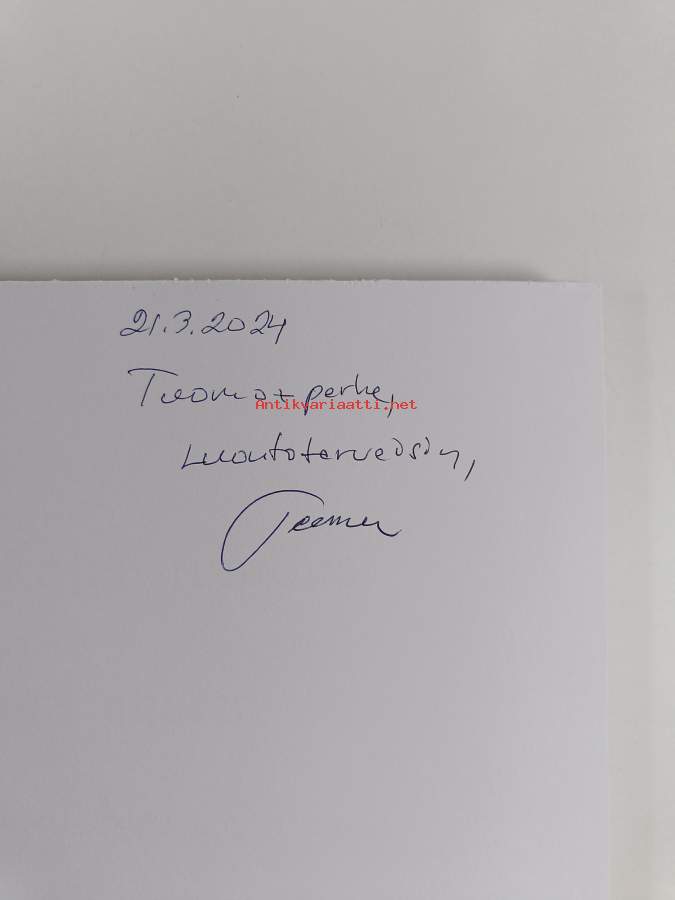 21.3.2024
Tuomo + perhe,
Antikvariaatti.net
Luontoterveisin,
Teemu